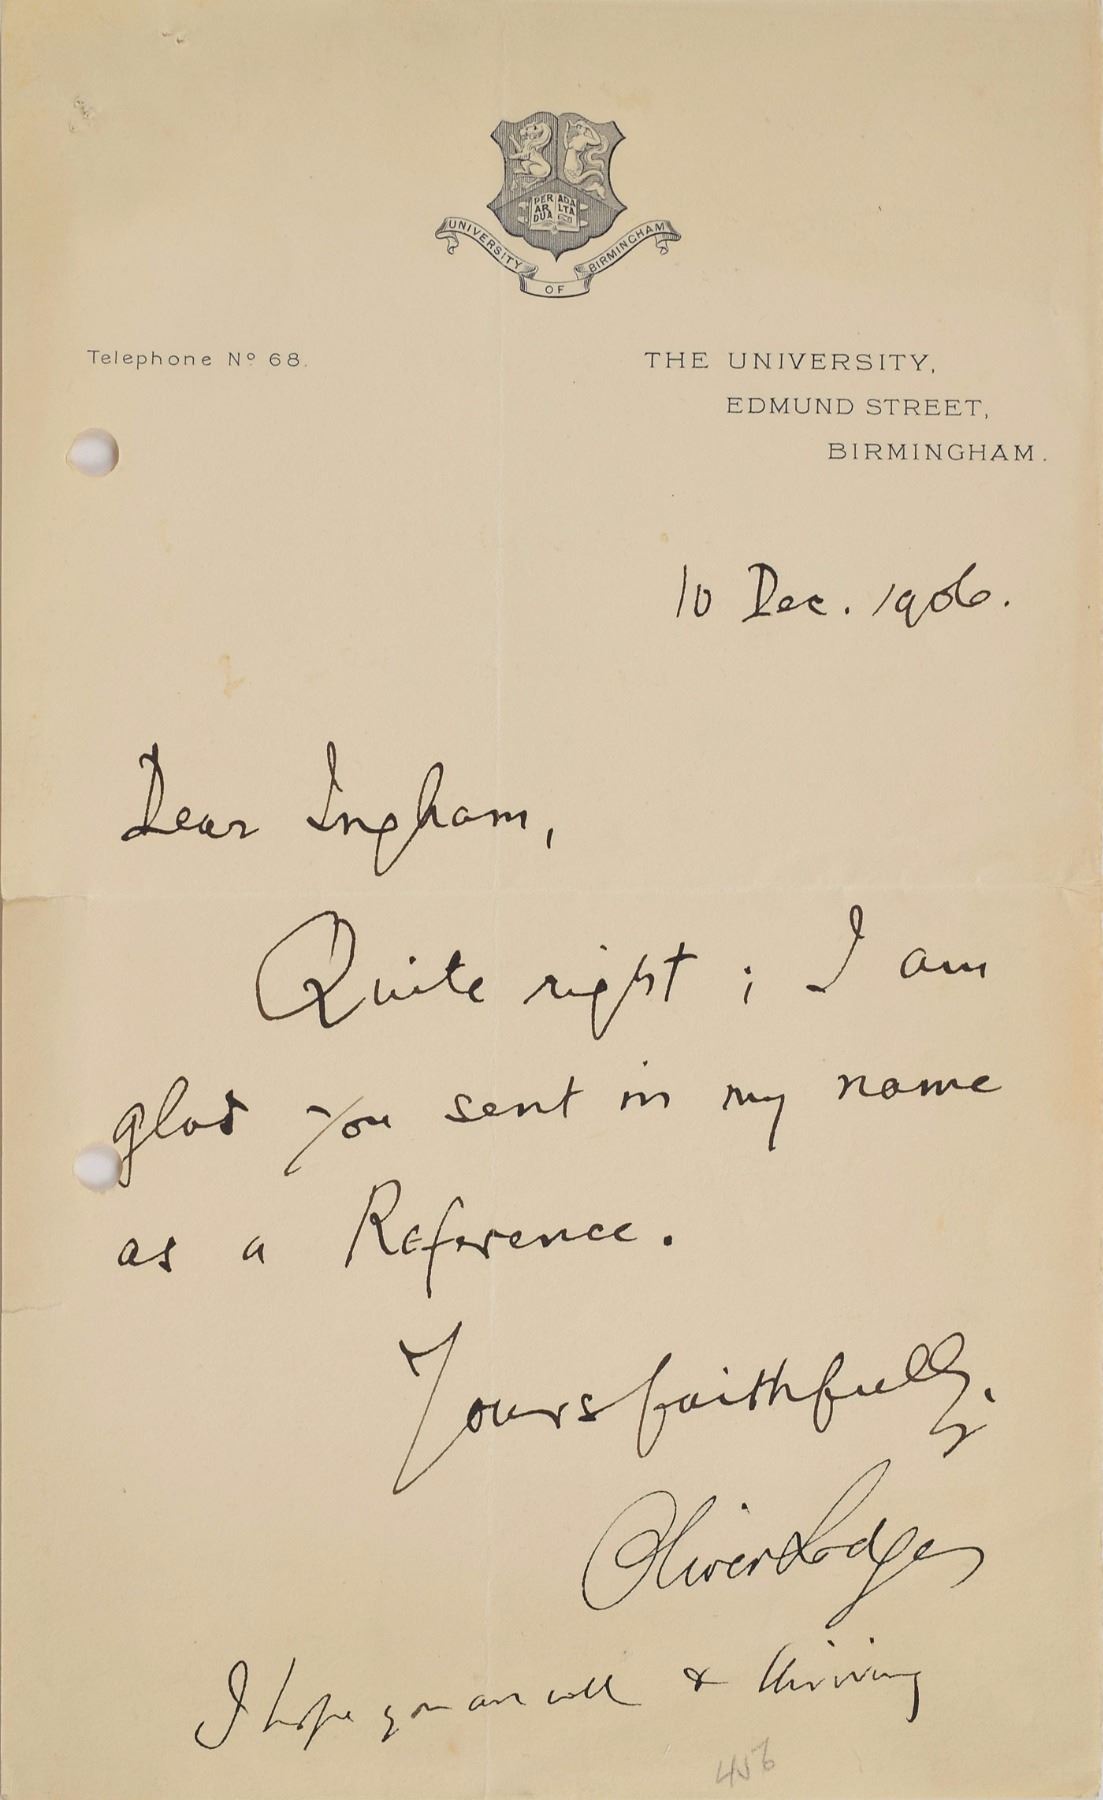 PER ADA
AR LTA
DUA
UNIVERSITY OF BIRMINGHAM
Telephone Nº 68.
THE UNIVERSITY,
EDMUND STREET,
BIRMINGHAM.
10 Dec. 1906.
Dear Ingham,
Quite right; I am
glad you sent in my name
as a Reference.
Yours faithfully,
Oliver Lodge
I hope you are well & thriving
456